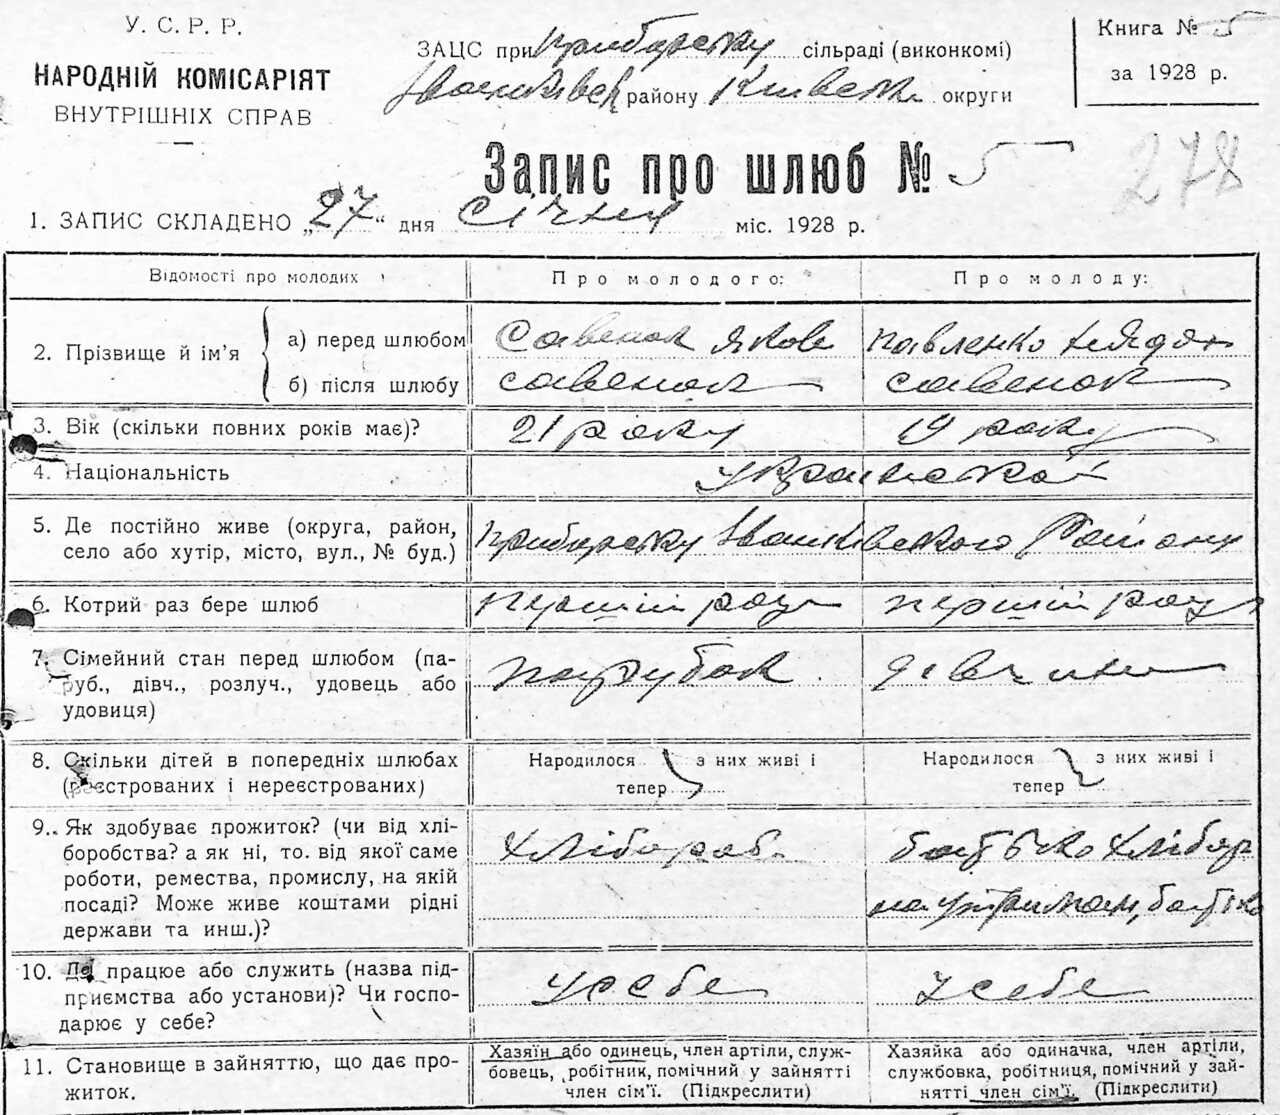 У. С. Р. Р.
НАРОДНІЙ КОМІСАРІЯТ
ВНУТРІШНІХ СПРАВ
ЗАЦС при Прибирську сільраді (виконкомі)
району Київськ округи
Книга № 5
за 1928 р.
Запис про шлюб № 5
278
1. ЗАПИС СКЛАДЕНО „27" дня січня міс. 1928 р.
Відомості про молодих
Про молодого:
Про молоду:
2. Прізвище й ім'я
а) перед шлюбом
Савенок Яков
Павленко
б) після шлюбу
Савенок
Савенок
3. Вік (скільки повних років має)?
21 року
19 року
4. Національність
5. Де постійно живе (округа, район,
село або хутір, місто, вул., № буд.)
Прибирську Іванківського Району
6. Котрий раз бере шлюб
перший раз
перший раз
7. Сімейний стан перед шлюбом (па-
руб., дівч., розлуч., удовець або
удовиця)
парубок
дівчина
8. Скільки дітей в попередніх шлюбах
(реєстрованих і нереєстрованих)
Народилося з них живі і
тепер
Народилося з них живі і
тепер
9. Як здобуває прожиток? (чи від хлі-
боробства? а як ні, то. від якої саме
роботи, ремества, промислу, на якій
посаді? Може живе коштами рідні
держави та инш.)?
Хлібороб
батько
10. Де працює або служить (назва під-
приємства або установи)? Чи госпо-
дарює у себе?
у себе
у себе
11. Становище в зайняттю, що дає про-
житок.
Хазяїн або одинець, член артіли, служ-
бовець, робітник, помічний у зайнятті
член сім'ї. (Підкреслити)
Хазяйка або одиначка, член артіли,
службовка, робітниця, помічний у зай-
нятті член сім'ї. (Підкреслити)